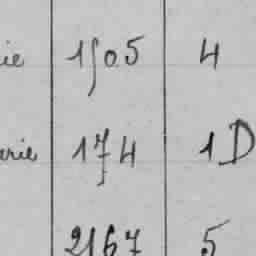 ie 1505 4
arie 174 1D
2167 5